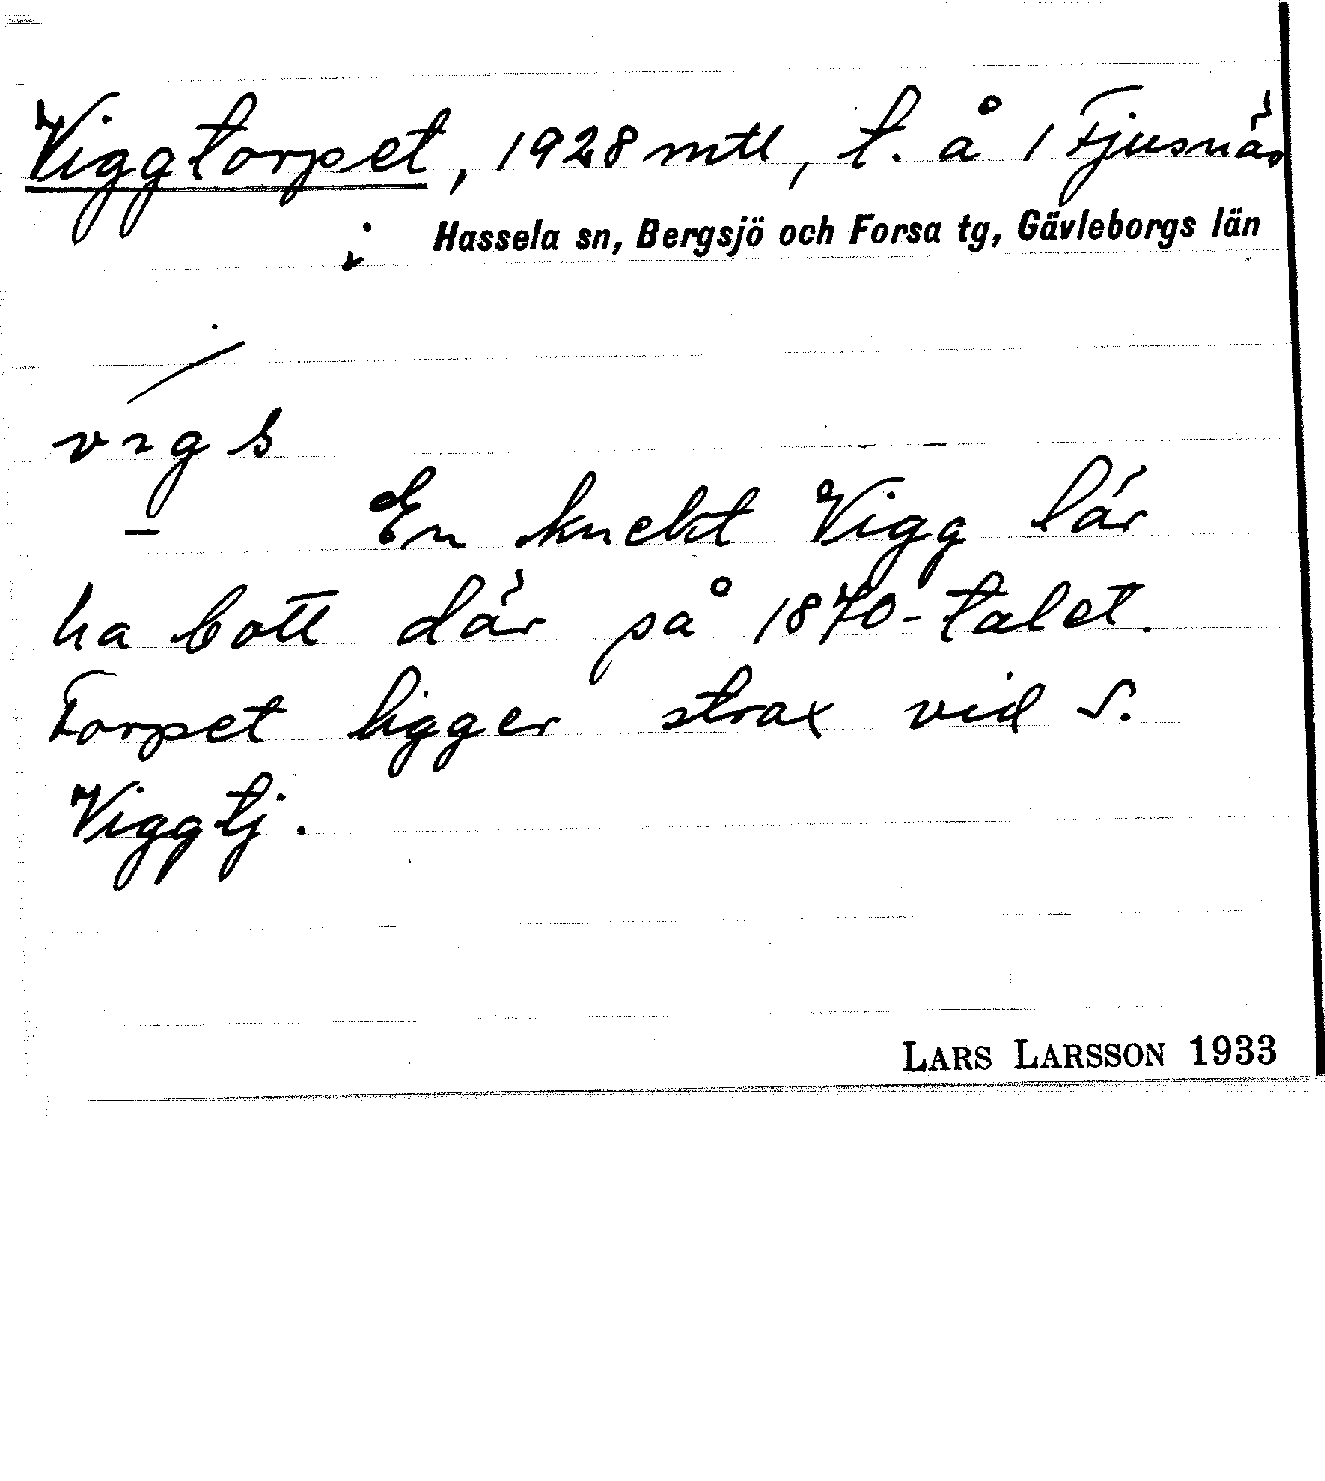 Viggtorpet, 1928 mtl, t. å 1 Fjusnäs
i Hassela sn, Bergsjö och Forsa tg, Gävleborgs län
En knekt Vigg lär
ha bott där på 1870-talet.
Torpet ligger strax vid S.
Viggtj.
LARS LARSSON 1933